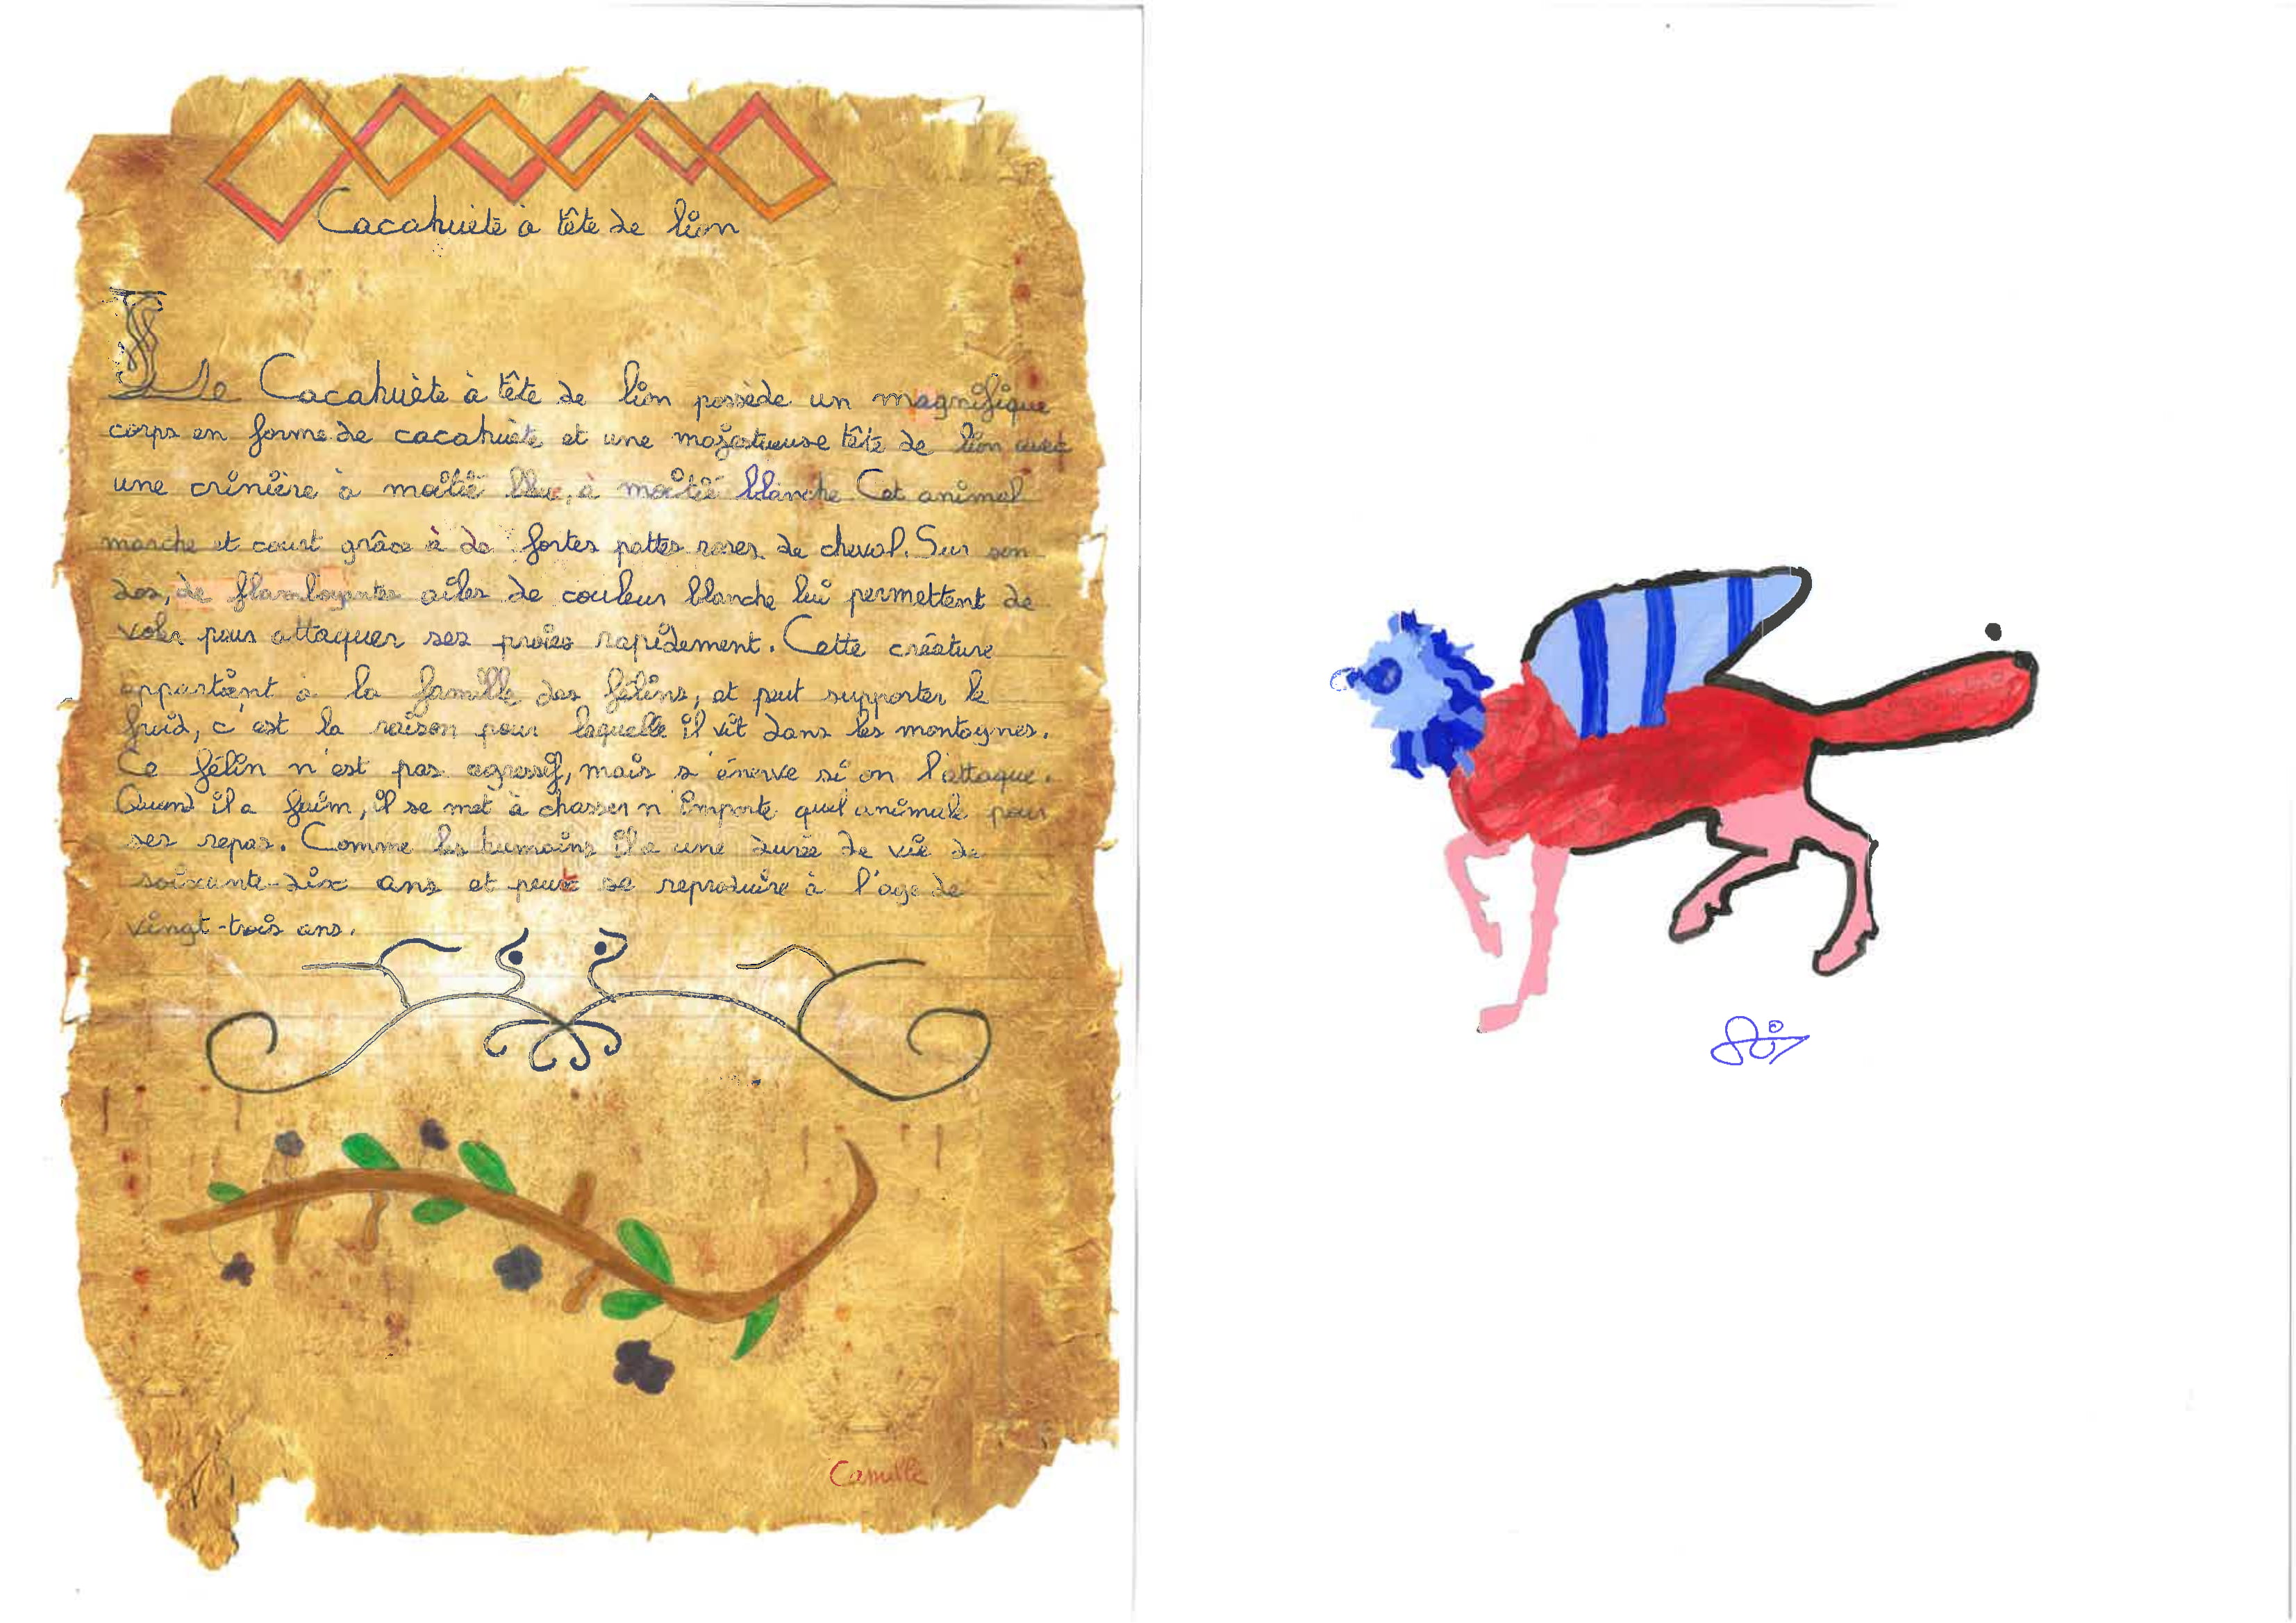 Cacahuète à tête de lion
Le Cacahuète à tête de lion possède un magnifique
corps en forme de cacahuète et une majestueuse tête de lion avec
une crinière à moitié bleue, à moitié blanche. Cet animal
marche et court grâce à de fortes pattes roses de cheval. Sur son
dos, de flamboyantes ailes de couleur blanche lui permettent de
voler pour attaquer ses proies rapidement. Cette créature
appartient à la famille des félins, et peut supporter le
froid, c'est la raison pour laquelle il vit dans les montagnes.
Ce félin n'est pas agressif, mais s'énerve si on l'attaque.
Quand il a faim, il se met à chasser n'importe quel animal pour
ses repas. Comme les humains il a une durée de vie de
soixante-dix ans et peut se reproduire à l'age de
vingt-trois ans.
Camille